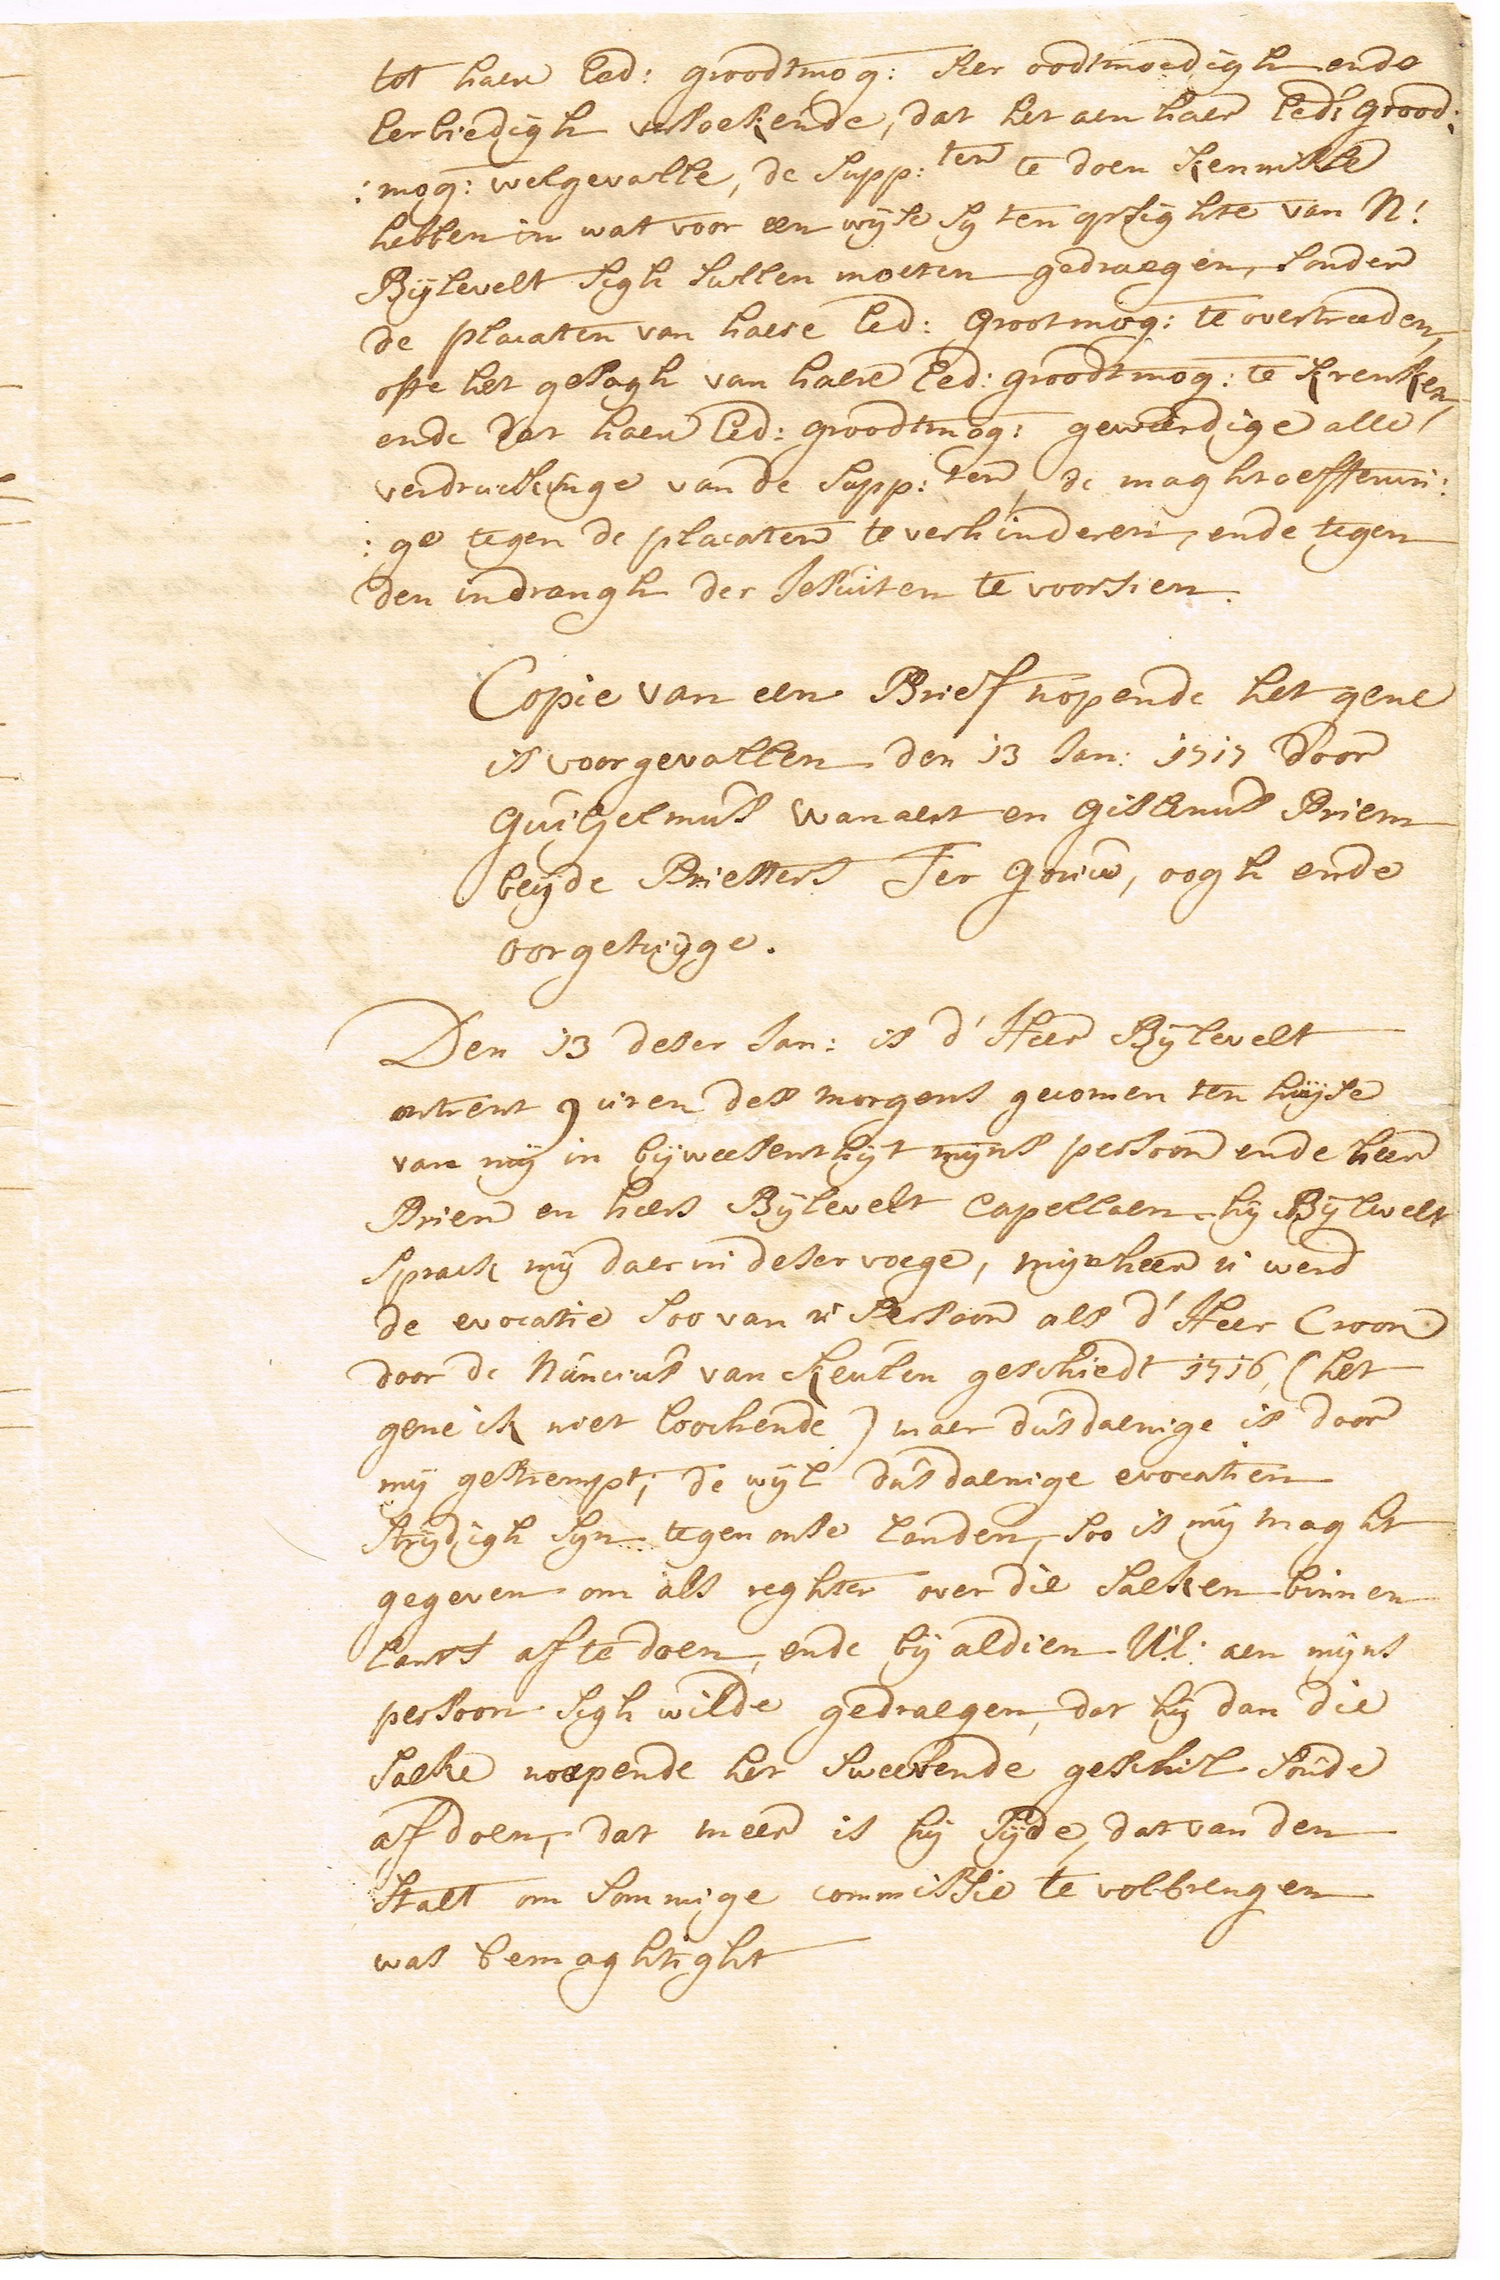 tot haere Eed: grootmog: seer oodtmoedigh ende
Eerbiedigh versoekende, dat het aen haer Eed: groodt:
:mog: welgevalle, de Supp:ten te doen Kennisse
hebben in wat voor een wijse sij ten opsighte van N:
Bijlevelt sigh sullen moeten gedraegen, sonder
de placaten van haere Eed: Grootmog: te overtreeden,
ofte het gesagh van haere Eed: groodtmog: te krenken,
ende dat haere Eed: groodtmog: gewaerdige alle
verdruckinge van de Supp:ten, de maghtoeffenin:
:ge tegen de placaten te verhinderen, ende tegen
den indrangh der Jesuiten te voorsien.
Copie van een Brief nopende het gene
is voorgevallen den 13 Jan: 1717 door
Guilielmus van aest en Gisbertus Brien
beyde Priesters Ter Gouw, oogh ende
oorgetuijge.
Den 13 deser Jan: is d' Heer Bijlevelt
ontrent 9 uren des morgens gecomen ten huijse
van mij in bijweesentheijt mijns persoon ende heer
Brien en heers Bijlevelt Capellaen. hij Bijlevelt
sprack mij daer in deser voege, mijn heer u werd
de evocatie soo van u Persoon als d' Heer Croon
door de Nuncius van Keulen geschiedt 1716, (het
gene ick niet loochende) maer dusdaenige is door
mij gestrempt, de wijl dusdaenige evocatien
strijdigh sijn tegen onse landen, soo is mij maght
gegeven om als reghter over die saeken binnen
lants af te doen, ende bij aldien U.l: aen mijns
persoon sigh wilde gedraegen, dat hij dan die
saeke noepende het sweevende geschil soude
afdoen, dat meer is hij sijde, dat van den
Staet om sommige commissie te volbrengen
was bemaghtight